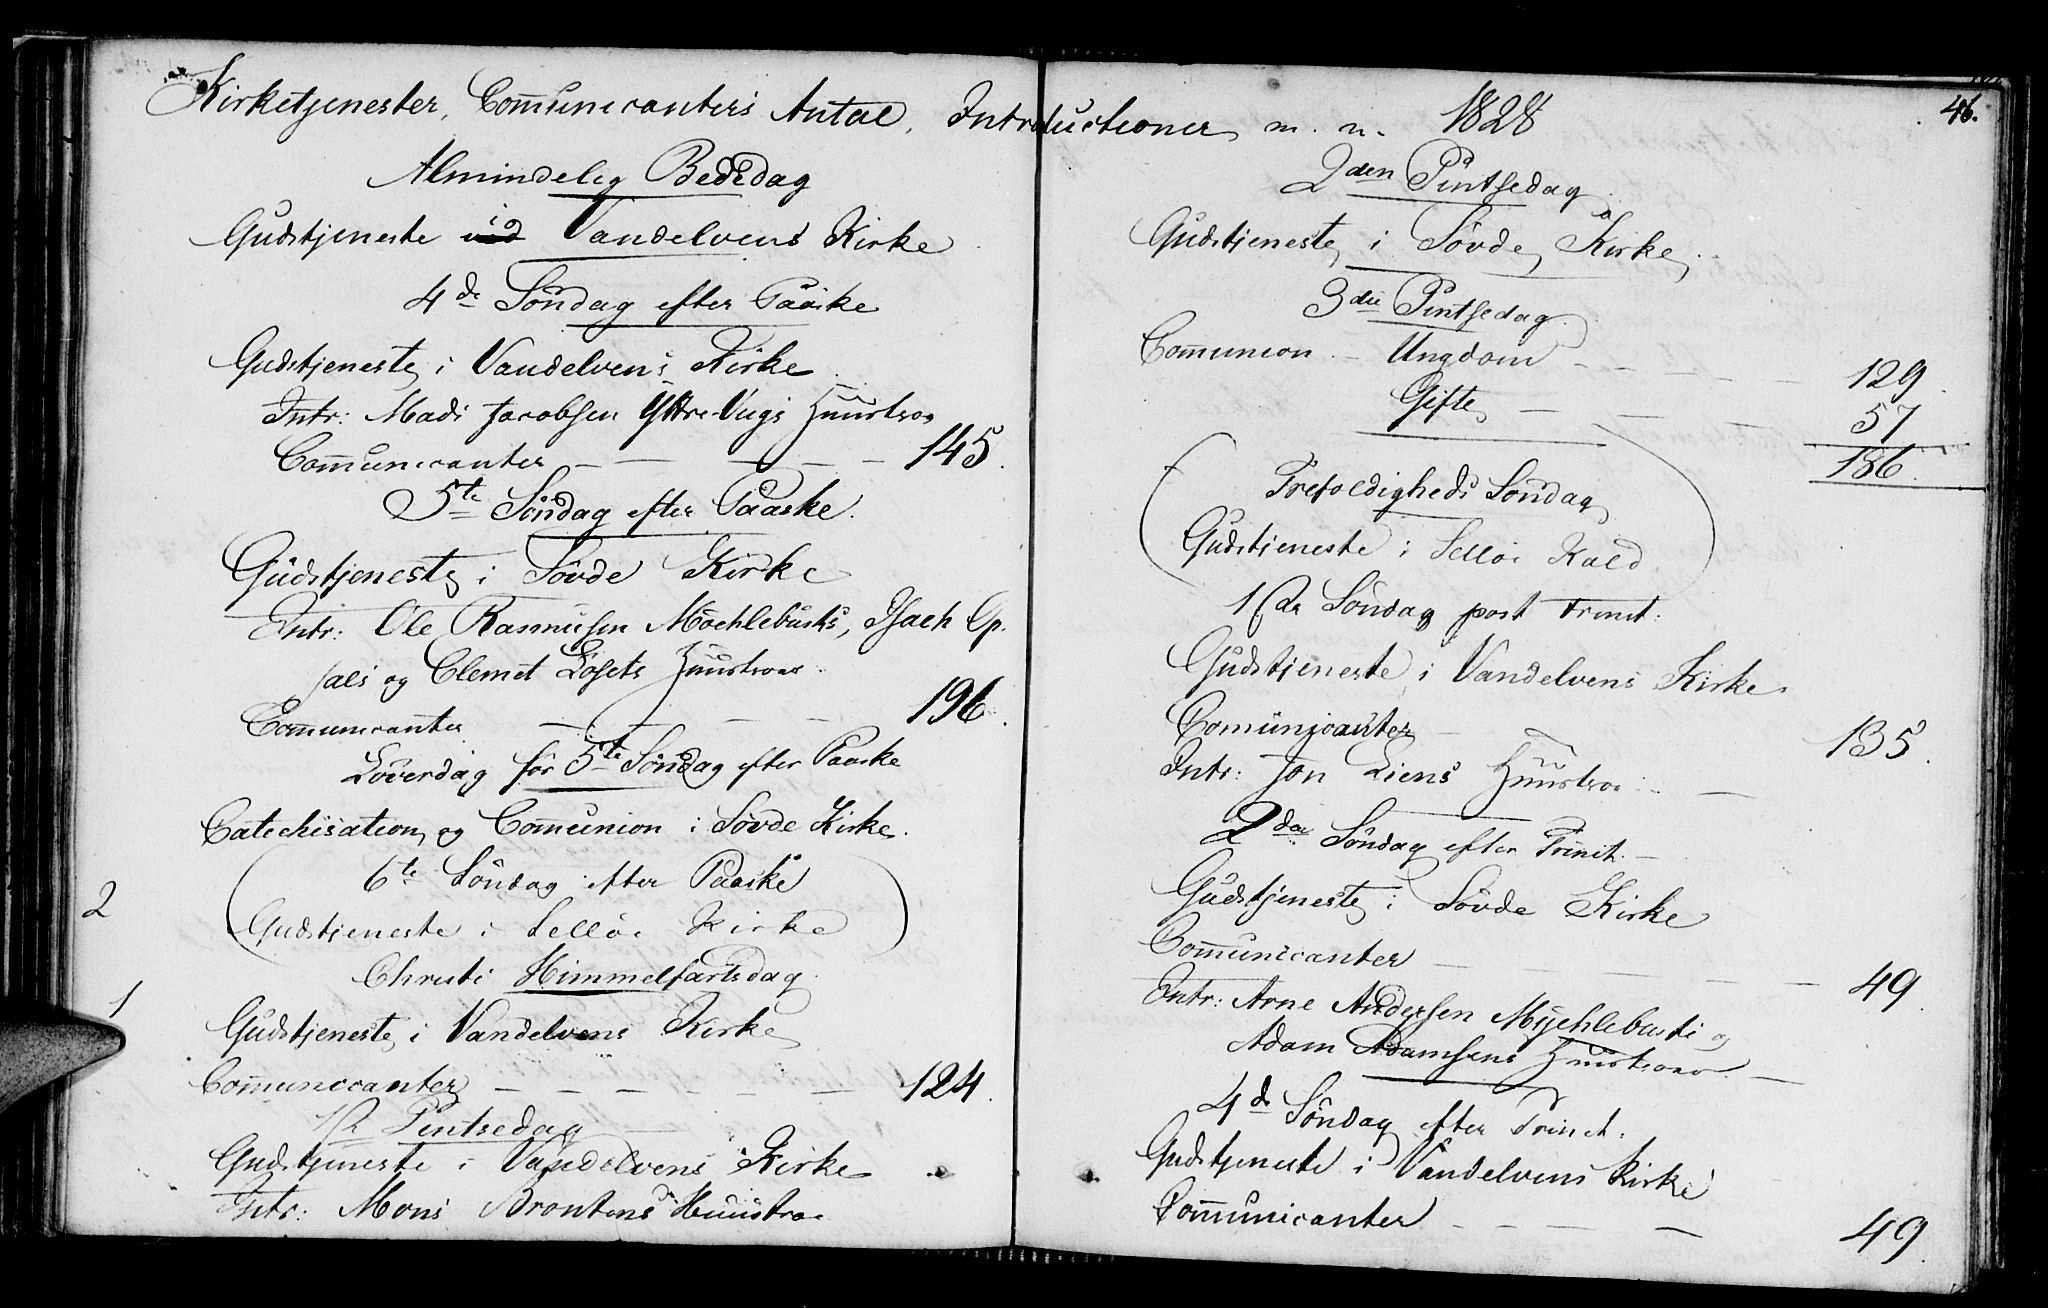 Kirketjenester, Com̄unicanters Antal, Introductioner m. v. 1828
46.
Almindelig Bededag
Gudstjeneste i Vandelvens Kirke
4de Søndag efter Paaske
Gudstjeneste i Vandelvens Kirke
Intr: Mads Jacobsen Yttre Vugs Huustroe
Com̄unicanter — — — — — 145.
5te Søndag efter Paaske.
Gudstjeneste i Søvde Kirke
Intr: Ole Rasmusen Møehlebusts, Isach Op-
sals og Clemet Losets Huustroer.
Com̄unicanter — — — — 196.
Løverdag før 5te Søndag efter Paaske
Catechisation og Com̄union i Søvde Kirke.
6te Søndag efter Paaske
2
Gudstjeneste i Selløe Kirke
Christi Himmelfartsdag.
1
Gudstjeneste i Vandelvens Kirke
Com̄unicanter — — — — — — 124.
1ste Pintsedag
Gudstjeneste i Vandelvens Kirke
Intr: Mons Brontens Huustroe
2den Pintsedag.
Gudstjeneste i Søvde Kirke.
3die Pintsedag.
Com̄union. — Ungdom — — — — — 129.
Gifte — — — 57
186.
Trefoldigheds Søndag
Gudstjeneste i Selløe Kald
1ste Søndag post Trinit.
Gudstjeneste i Vandelvens Kirke.
Comunicanter — 135.
Intr: Jon Liens Huustroe —
2den Søndag efter Trinit. —
Gudstjeneste i Søvde Kirke
Com̄unicanter — — — — — 49.
Intr: Arne Andersen Myehlebusts og
Adam Adamsens Huustroer. —
4de Søndag efter Trinit.
Gudstjeneste i Vandelvens Kirke
Com̄unicanter — — — — 49.